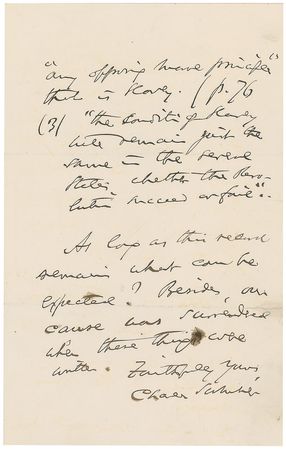 "any opposing moral principle"
that is slavery. (p. 76
(3) "The condition of slavery
will remain just the
same in the several
States, whether the Revo-
lution succeed or fail".
As long as this record
remains what can be
expected? Besides, our
cause was surrendered
when these things were
written. Faithfully Yours,
Charles Sumner